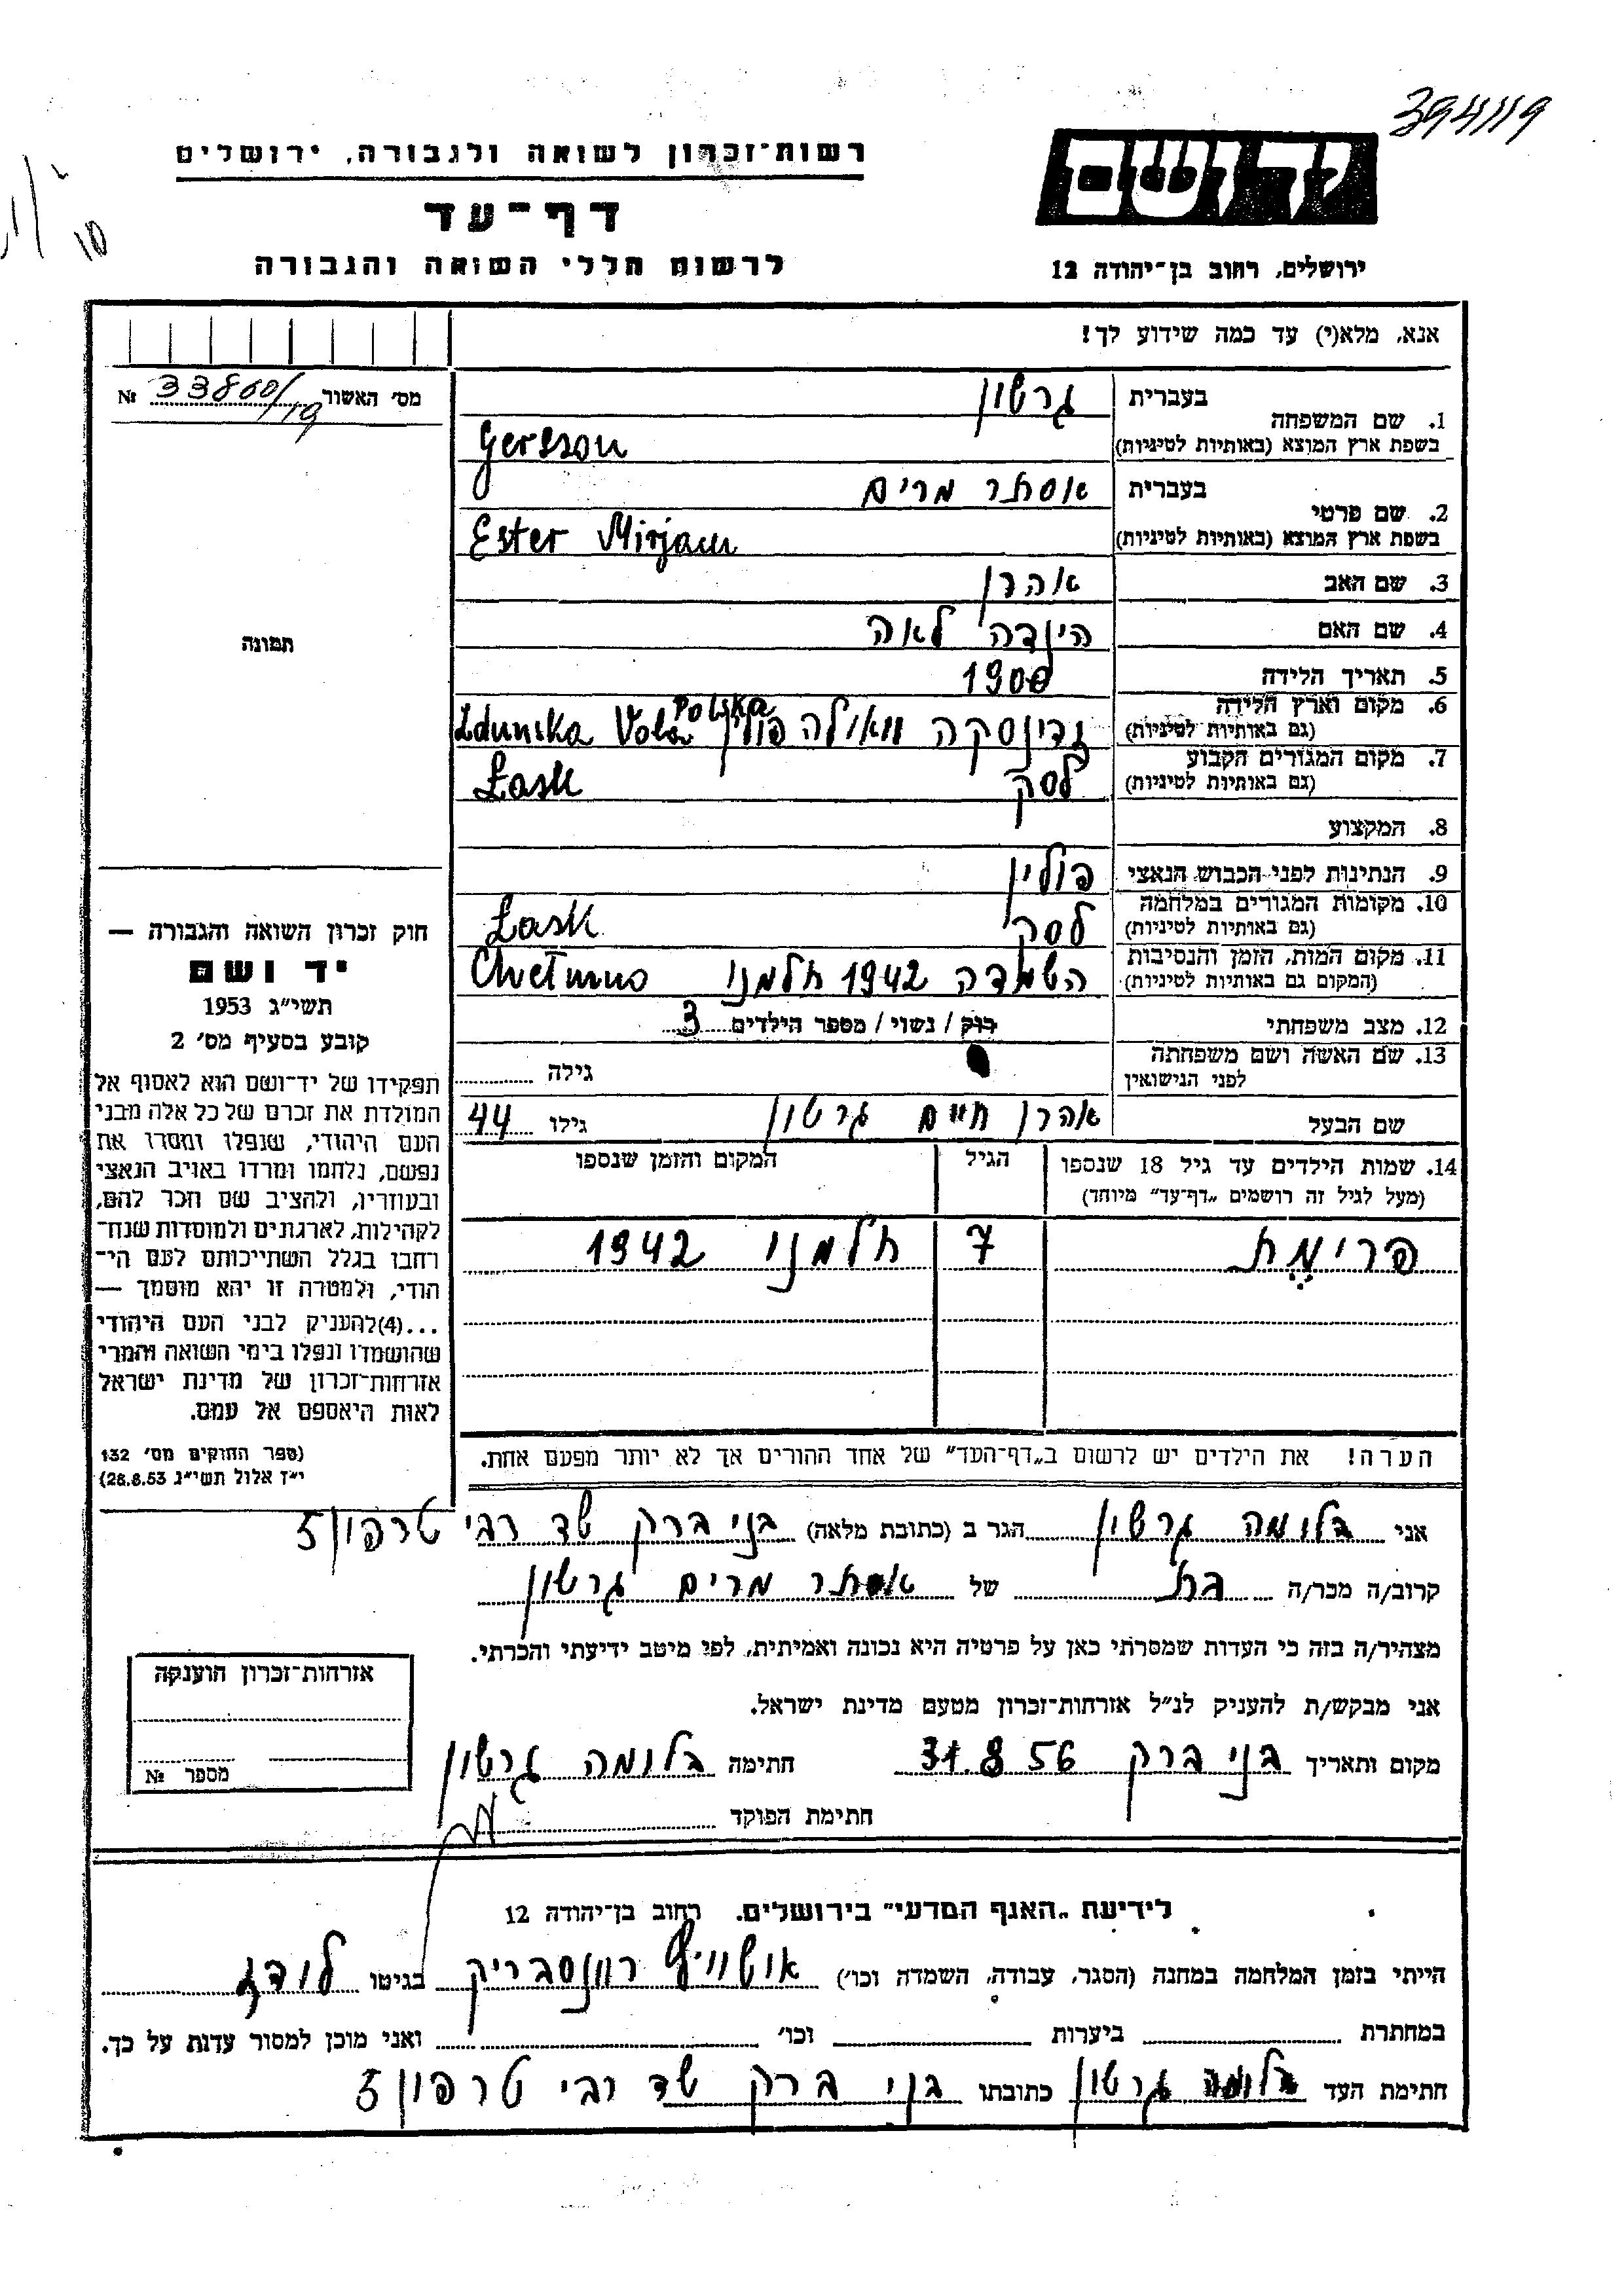 394119
רשות־זכרון לשואה ולגבורה, ירושלים
יד ושם
דף־עד
לרשום חללי השואה והגבורה
ירושלים, רחוב בן־יהודה 12
אנא, מלא(י) עד כמה שידוע לך!
מס׳ האשור 33860/19 №
1. שם המשפחה בעברית גרשון
בשפת ארץ המוצא (באותיות לטיניות) Gerszon
2. שם פרטי בעברית אסתר מרים
בשפת ארץ המוצא (באותיות לטיניות) Ester Mirjam
3. שם האב אהרן
תמונה
4. שם האם הינדה לאה
5. תאריך הלידה 1900
6. מקום וארץ הלידה (גם באותיות לטיניות) זדונסקה וואולה פולין Zdunska Vola Polska
7. מקום המגורים הקבוע (גם באותיות לטיניות) לסק Łask
8. המקצוע
9. הנתינות לפני הכבוש הנאצי פולין
10. מקומות המגורים במלחמה (גם באותיות לטיניות) לסק Łask
11. מקום המות, הזמן והנסיבות (המקום גם באותיות לטיניות) השמדה 1942 חלמנו Chełmno
12. מצב משפחתי רוק / נשוי / מספר הילדים 3
13. שם האשה ושם משפחתה לפני הנישואין גילה
שם הבעל אהרן חיים גרשון גילו 44
14. שמות הילדים עד גיל 18 שנספו הגיל המקום והזמן שנספו
(מעל לגיל זה רושמים „דף־עד” מיוחד)
פרימֶת 7 חלמנו 1942
חוק זכרון השואה והגבורה —
יד ושם
תשי״ג 1953
קובע בסעיף מס׳ 2
תפקידו של יד־ושם הוא לאסוף אל
המולדת את זכרם של כל אלה מבני
העם היהודי, שנפלו ומסרו את
נפשם, נלחמו ומרדו באויב הנאצי
ובעוזריו, ולהציב שם וזכר להם,
לקהילות, לארגונים ולמוסדות שנח־
רבו בגלל השתייכותם לעם הי־
הודי, ולמטרה זו יהא מוסמך —
...(4) להעניק לבני העם היהודי
שהושמדו ונפלו בימי השואה והמרי
אזרחות־זכרון של מדינת ישראל
לאות היאספם אל עמם.
(ספר החוקים מס׳ 132
י״ז אלול תשי״ג 28.8.53)
הערה! את הילדים יש לרשום ב„דף־העד” של אחד ההורים אך לא יותר מפעם אחת.
אני בלומה גרשון הגר ב (כתובת מלאה) בני ברק שד רבי טרפון 7
קרוב/ה מכר/ה בת של אסתר מרים גרשון
מצהיר/ה בזה כי העדות שמסרתי כאן על פרטיה היא נכונה ואמיתית, לפי מיטב ידיעתי והכרתי.
אני מבקש/ת להעניק לנ״ל אזרחות־זכרון מטעם מדינת ישראל.
מקום ותאריך בני ברק 31.8 56 חתימה בלומה גרשון
חתימת הפוקד
אזרחות־זכרון הוענקה
מספר №
לידיעת „האגף המדעי” בירושלים. רחוב בן־יהודה 12
הייתי בזמן המלחמה במחנה (הסגר, עבודה, השמדה וכו׳) אושוויץ רוונסבריק בגיטו לודז
במחתרת ביערות וכו׳ ואני מוכן למסור עדות על כך.
חתימת העד בלומה גרשון כתובתו בני ברק שד רבי טרפון 7